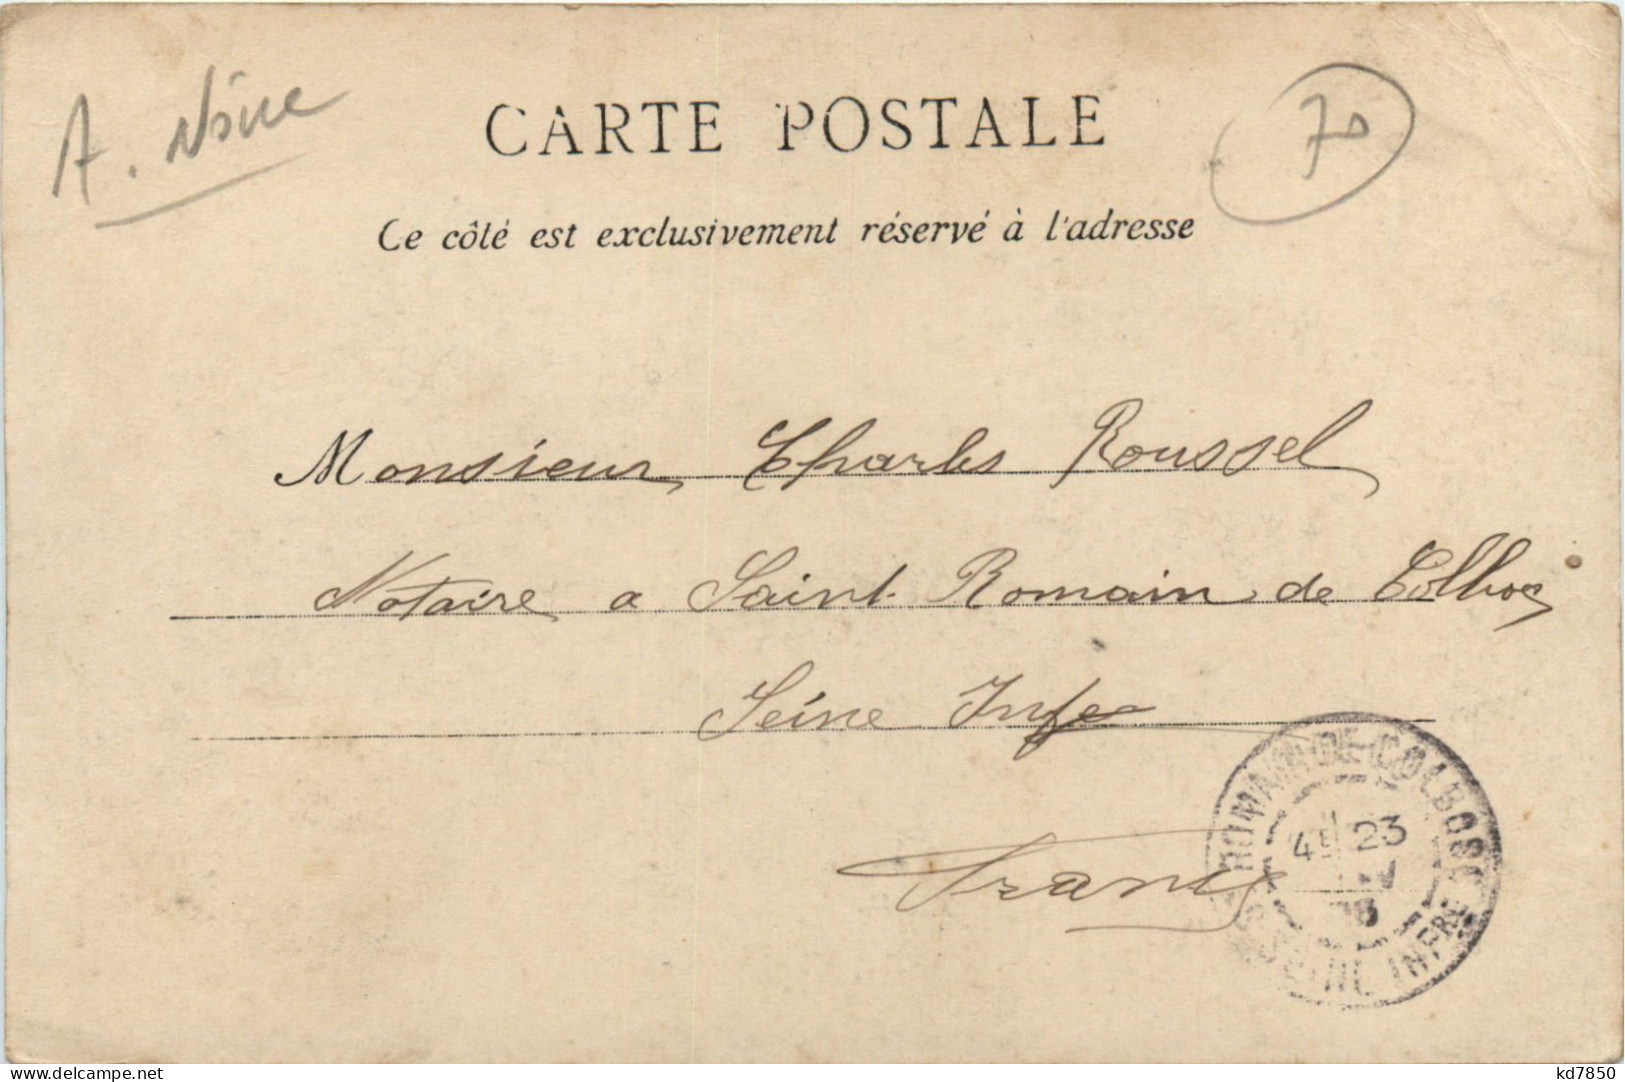 A. Noire
70
CARTE POSTALE
Ce côté est exclusivement réservé à l'adresse
Monsieur Charles Roussel
Notaire a Saint Romain de Colbosc
Seine Infre
France
ROMAIN DE COLBOSC
4E 23
SEINE INFRE
delcampe.net
kd7850